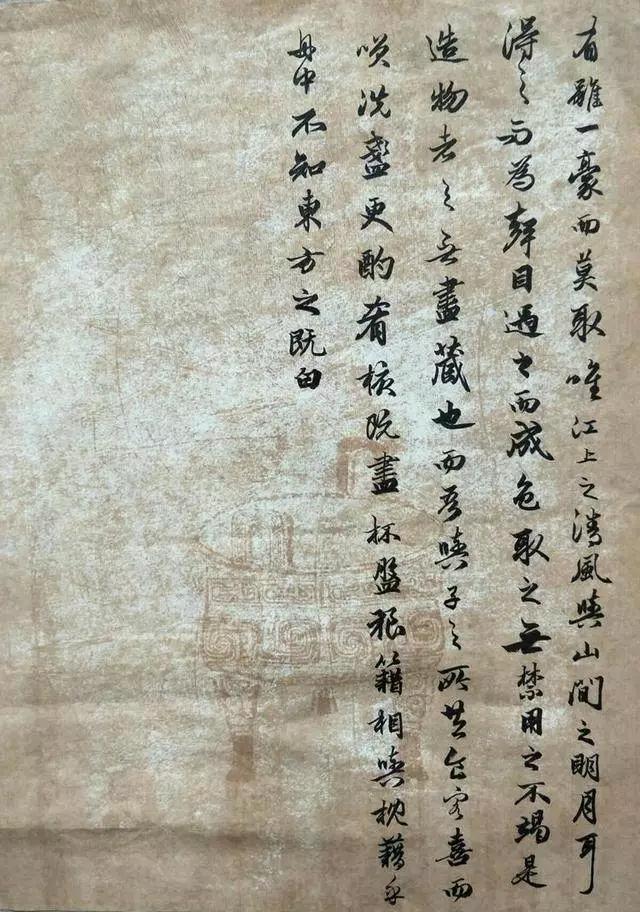 有雖一豪而莫取唯江上之清風與山間之明月耳
得之而為聲目遇之而成色取之無禁用之不竭是
造物者之無盡藏也而吾與子之所共食客喜而
咲洗盞更酌肴核既盡杯盤狼籍相與枕藉乎
舟中不知東方之既白